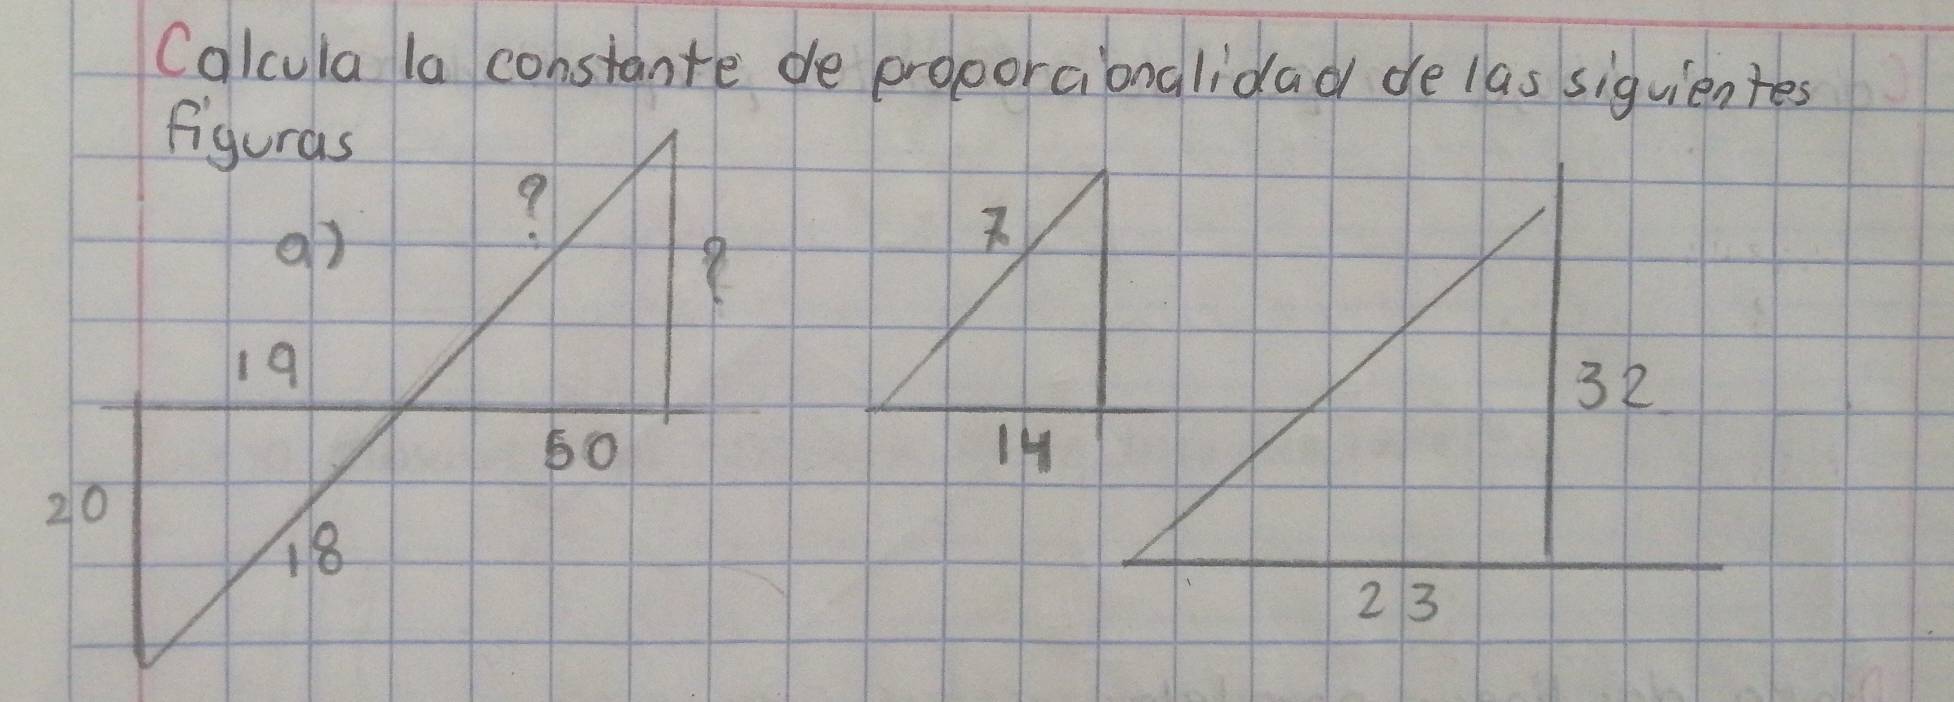 Calcula la constante de proporcionalidad de las siguientes
figuras
a)
?
?
19
50
20
18
7
14
32
23